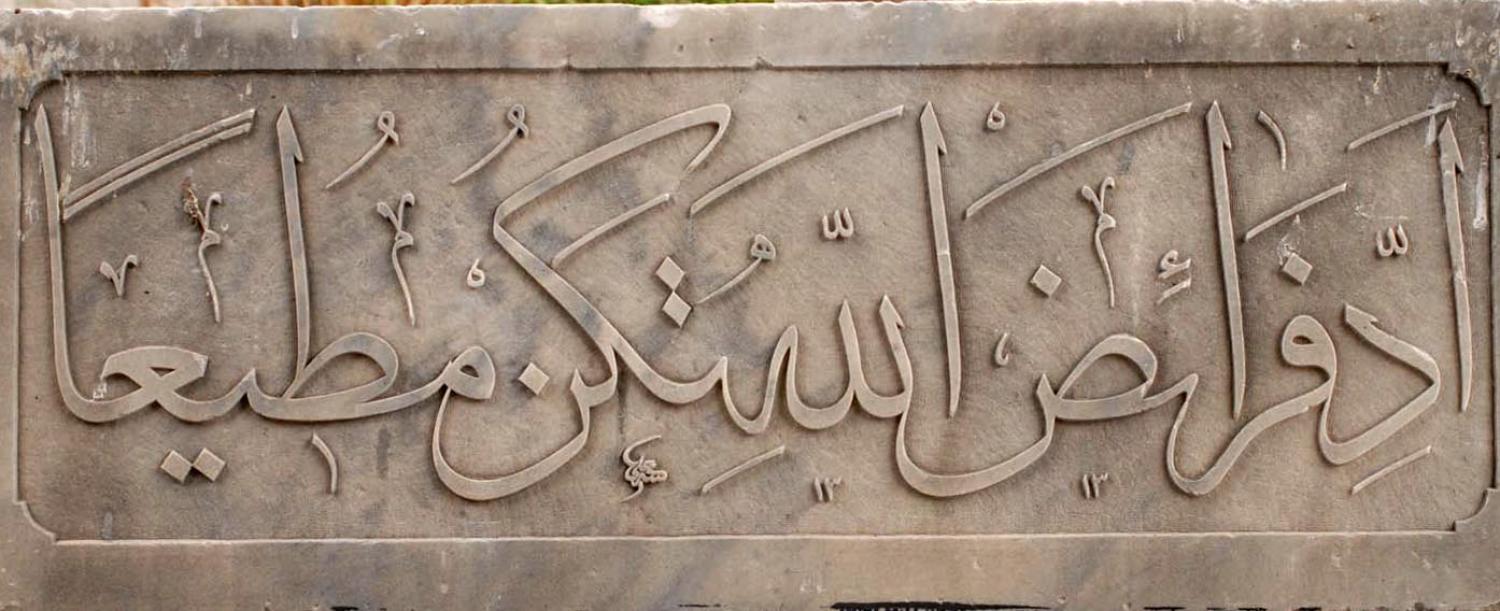 اَدِّ فَرَائِضَ اللّٰهِ تَكُنْ مُطِيعًا
١٣ ١٣